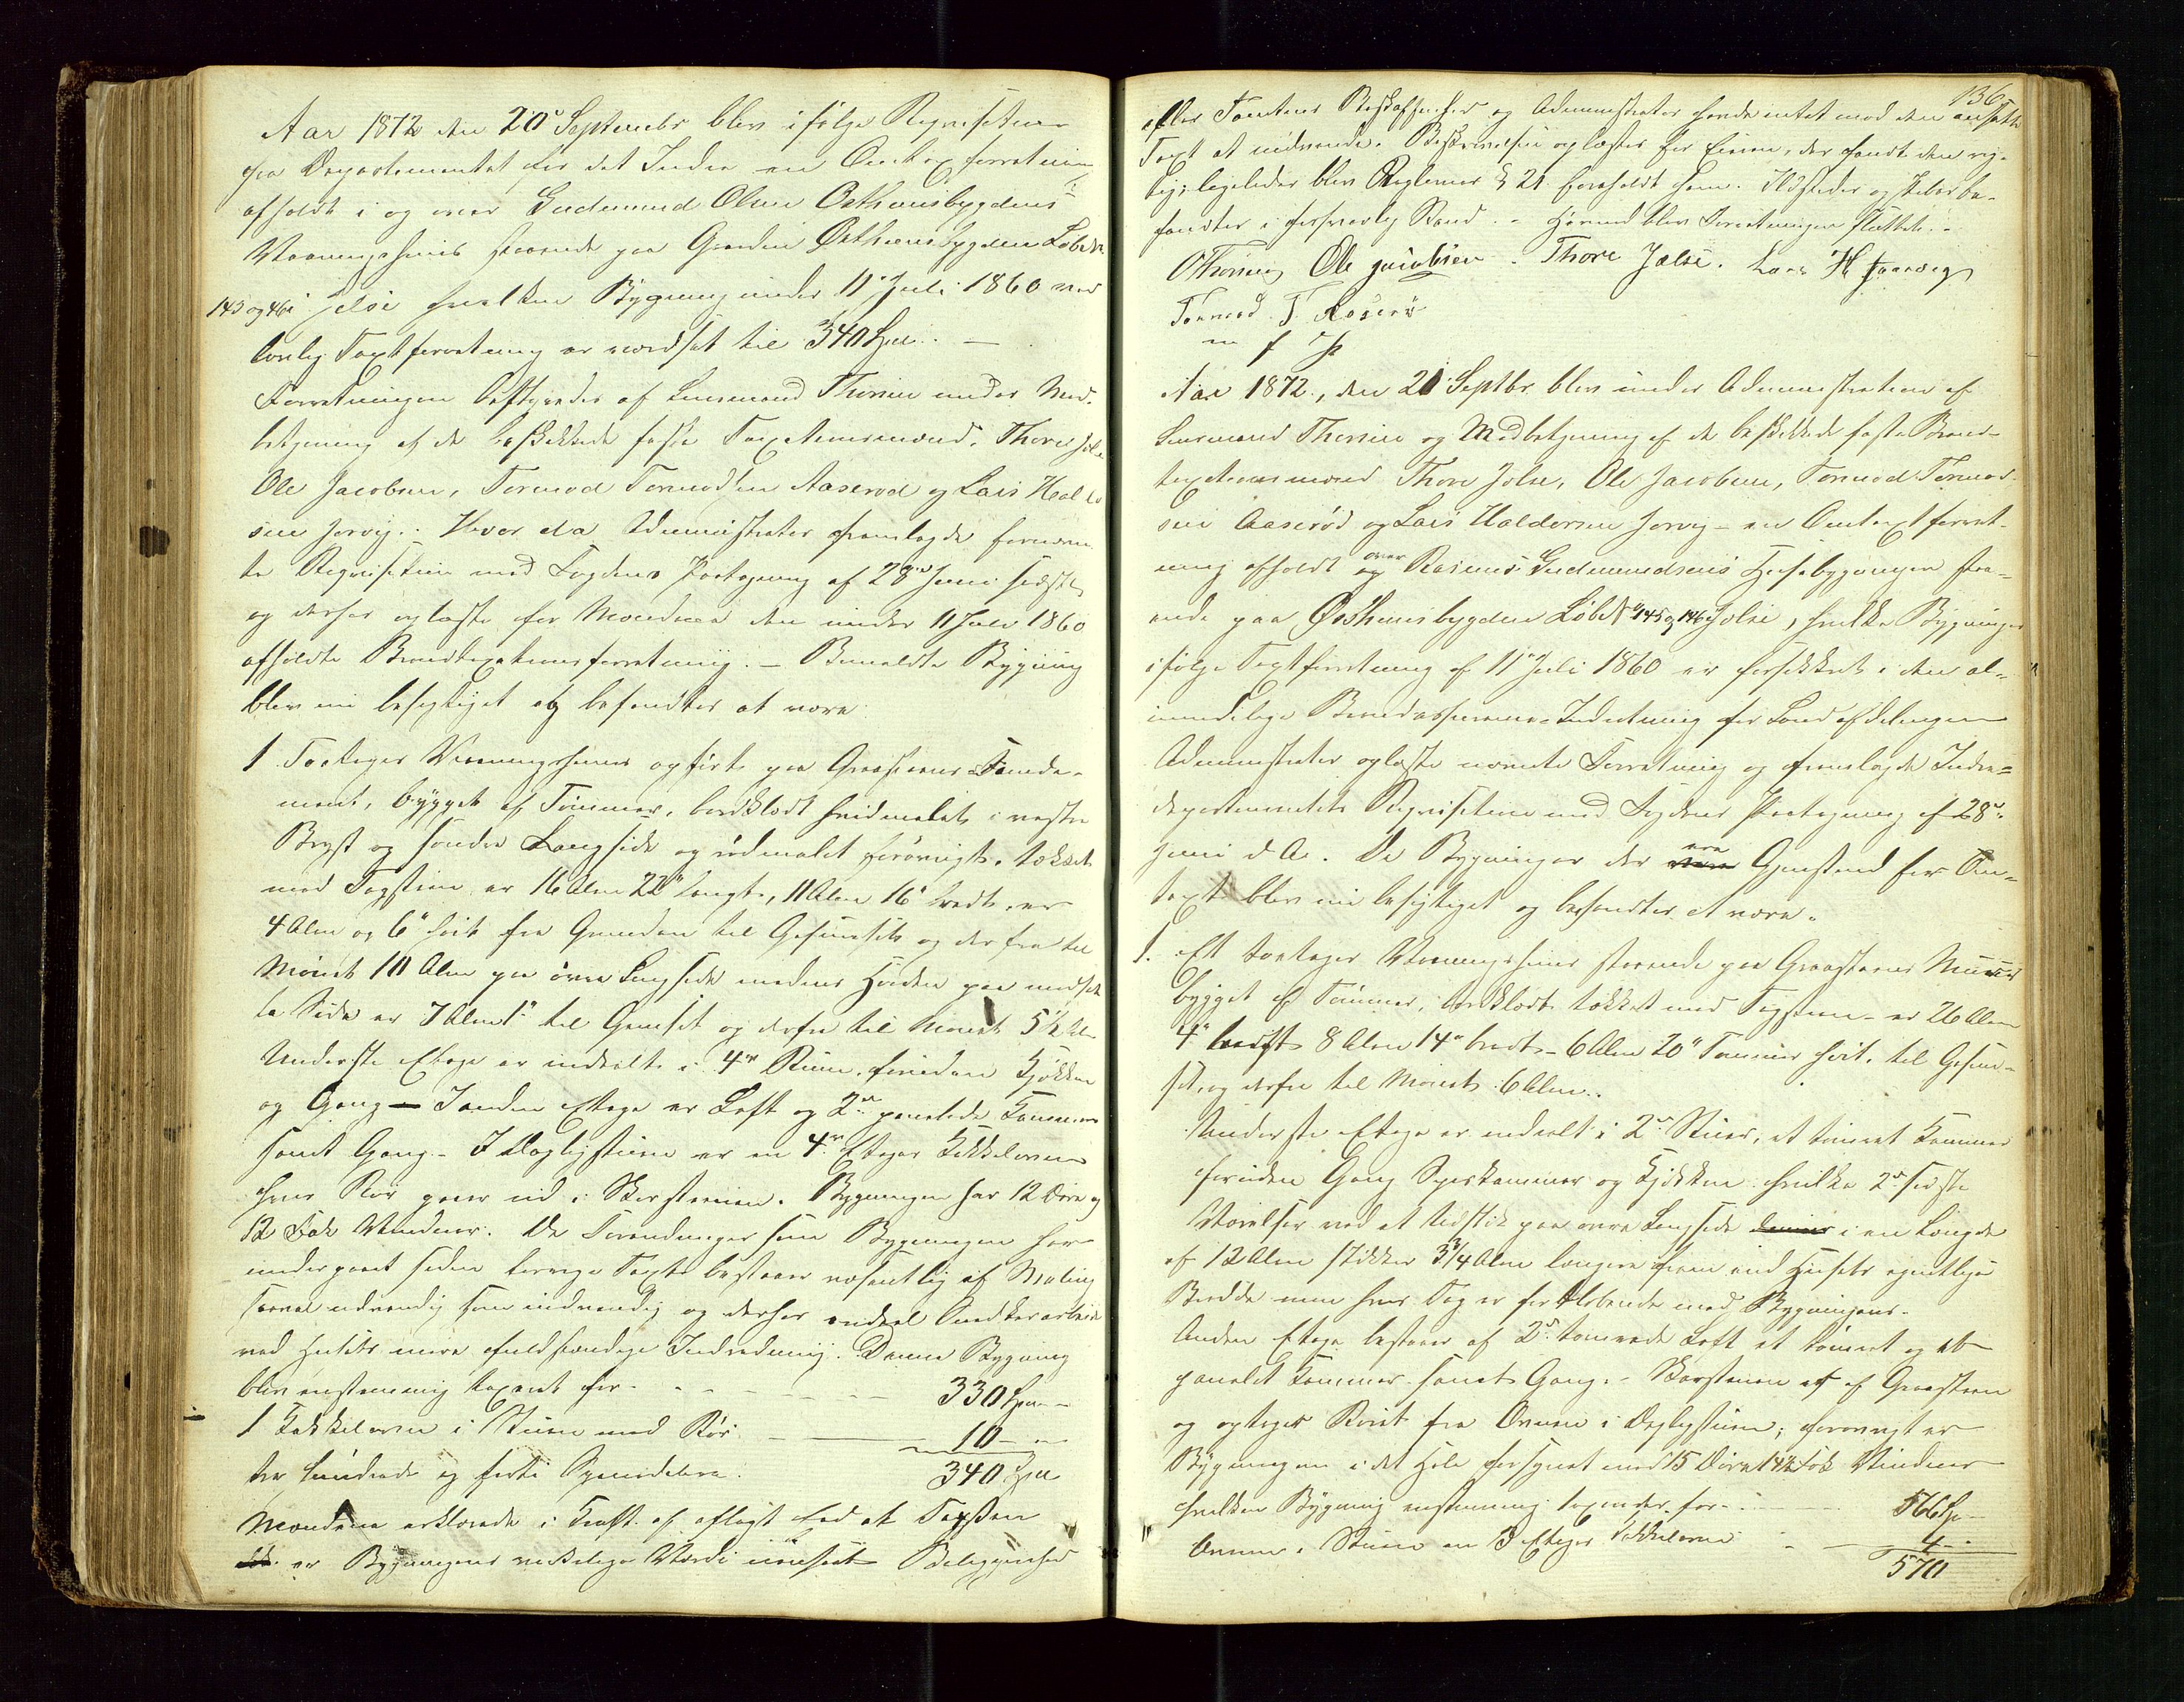 Aar 1872 den 20de Septembr blev ifølge Requisition
fra Departementet for det Indre en Omtaxtforretning
afholdt i og over Gudmund Olsen Østhuusbygdens
Vaaningshuus staaende paa Gaarden Østhuusbygden Løbe Nr
145 og 46 i Jelse hvilken Bygning under 11te Juli 1860 ved
lovlig Taxtforretning er værdsat til 340 Spd. —
Forretningen bestyredes af Lensmand Thorsen under Med-
betjening af de beskikkede faste Taxationsmænd, Thore Jelse
Ole Jacobsen, Tormod Tormodsen Aaserød og Lars Haldor
sen Jorvig. Hvor da Administrator fremlagde fornævn
te Requisition med Fogdens Paategning af 28de Juni sidstl.
og derhos oplæste for Mændene den under 11 Juli 1860
afholdte Brandtaxationsforretning. — Bemeldte Bygning
blev nu besigtiget og befandtes at være
1 Toetages Vaaningshuus opført paa Graasteens Funda-
ment, bygget af Tømmer, bordklædt hvidmalet i vestre
Bryst og søndre Langside og rødmalet forøvrigt, tækket
med Tagsteen, er 16 Alen 22" langt, 11 Alen 16" bredt, er
4 Alen og 6" høit fra Grunden til Gesimset og derfra til
Mønet 10 Alen paa øvre Langside medens Høiden paa modsat
te Side er 7 Alen 1" til Gesimset og derfra til Mønet 5½ Alen
Underste Etage er inddelt i 4re Rum, foruden Kjøkken
og Gang — I anden Etage er Loft og 2de panelede Kammere
samt Gang. - I Dagligstuen er en 4re Etages Kakkelovn
hvis Rør gaaer ind i Skorstenen. Bygningen har 12 Døre og
12 Fak Vinduer. De Forandringer som Bygningen har
undergaaet siden forrige Taxt bestaaer væsentlig af Maling
saavel udvendig som indvendig og derhos endeel Snedkerarbeide
ved Husets mere fuldstændige Indredning. Denne Bygning
blev enstemmig taxeret for - - - - - 330 Spd -
1 Kakkelovn i Stuen med Rør - — 10 - "
tre hundrede og førti Speciedaler. 340 Spd
Mændene erklærede i Kraft af aflagt Eed at Taxten
er Bygningens virkelige Værdi uanseet Beliggenhed
136.
eller Tomtens Beskaffenhed og Administrator havde intet mod den ansatte
Taxt at indvende. Beskrivelsen oplæstes for Eieren, der fandt den rig-
tig; ligeledes blev Reglernes § 21 foreholdt ham. Ildsteder og Peber be-
fandtes i forsvarlig Stand. - Hermed blev Forretningen sluttet. -
OThorsen Ole Jacobsen. Thore Jælse. Lars H Jaarvig
Tormod T Aaserø
m f P
Aar 1872, den 21 Septbr. blev under Administration af
Lensmand Thorsen og Medbetjening af de beskikkede faste Brand-
taxationsmænd Thore Jelse, Ole Jacobsen, Tormod Tormod-
sen Aaserød og Lars Haldorsen Jorvig - en Omtaxtforret-
ning afholdt over Rasmus Gudmundsens Husebygninger staa-
ende paa Østhuusbygden Løbe No 145 og 146 Jelse, hvilke Bygninger
ifølge Taxtforretning af 11te Juli 1860 er forsikkret i den al-
mindelige Brandassurance-Indretning for Landafdelingen
Administrator oplæste nævnte Forretning og fremlagde Indre-
departementets Requisition med Fogdens Paategning af 28de
Juni d. A. De Bygninger der ere Gjenstand for Om-
taxt blev nu besigtiget og befandtes at være.
1. Et toetages Vaaningshuus staaende paa Graasteens Muur
bygget af Tømmer, bordklædt tækket med Tagsteen - er 26 Alen
4" langt 8 Alen 14" bredt - 6 Alen 20" Tommer høit til Gesim-
set, og derfra til Mønet 6 Alen.
Underste Etage er inddelt i 2de Stuer, et tømret Kammer
foruden Gang Spiskammer og Kjøkken hvilke 2de sidste
Værelser ved et Udstik paa øvre Langside i en Længde
af 12 Alen stikker 3¾ Alen længere frem end Husets egentlige
Bredde men hvis Tag er fortløbende med Bygningens.
Anden Etage bestaaer af 2de tømrede Loft et tømret og et
panelet Kammer samt Gang. - Skorstenen er af Graasteen
og optager Røret fra Ovnen i Dagligstuen; forøvrigt er
Bygningen i det Hele forsynet med 15 Døre 14½ Fak Vinduer
hvilken Bygning enstemmig taxeres for - - - 566 Spd -
Ovnen i Stuen en 3 Etages Kakkelovn - - 4 -
570